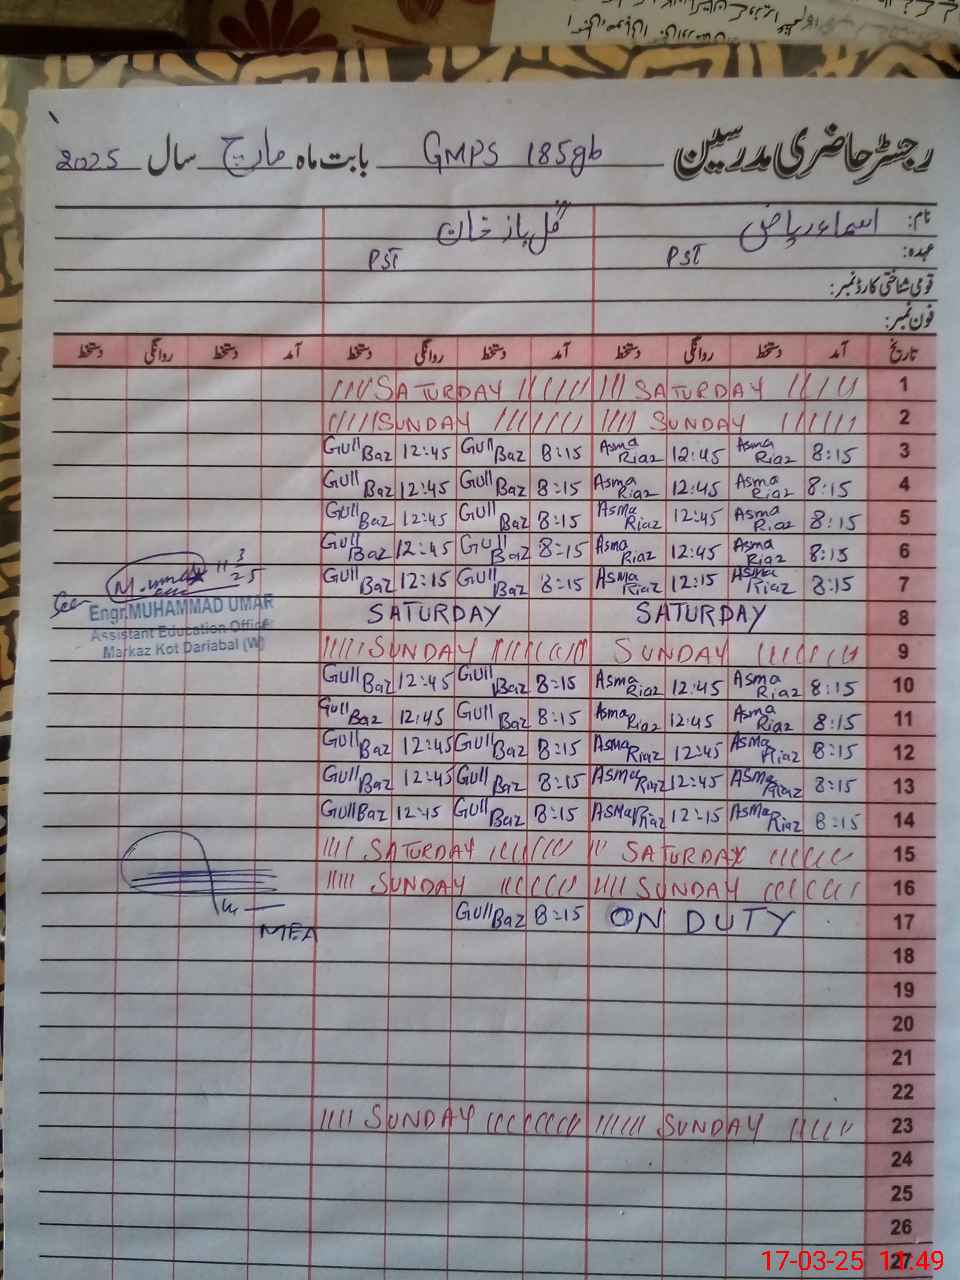 رجسٹر حاضری مدرسین GMPS 185gb بابت ماہ مارچ سال 2025
نام: اسماء ریاض گل باز خان
عہدہ: PST PST
قومی شناختی کارڈ نمبر:
فون نمبر:
تاریخ آمد دستخط روانگی دستخط آمد دستخط روانگی دستخط آمد دستخط روانگی دستخط
SATURDAY SATURDAY 1
SUNDAY SUNDAY 2
Gull Baz 12:45 Gull Baz 8:15 Asma Riaz 12:45 Asma Riaz 8:15 3
Gull Baz 12:45 Gull Baz 8:15 Asma Riaz 12:45 Asma Riaz 8:15 4
Gull Baz 12:45 Gull Baz 8:15 Asma Riaz 12:45 Asma Riaz 8:15 5
Gull Baz 12:45 Gull Baz 8:15 Asma Riaz 12:45 Asma Riaz 8:15 6
Gull Baz 12:15 Gull Baz 8:15 Asma Riaz 12:15 Asma Riaz 8:15 7
11 3 25
Engr.MUHAMMAD UMAR
Assistant Education Officer
Markaz Kot Dariabal (W)
SATURDAY SATURDAY 8
SUNDAY SUNDAY 9
Gull Baz 12:45 Gull Baz 8:15 Asma Riaz 12:45 Asma Riaz 8:15 10
Gull Baz 12:45 Gull Baz 8:15 Asma Riaz 12:45 Asma Riaz 8:15 11
Gull Baz 12:45 Gull Baz 8:15 Asma Riaz 12:45 Asma Riaz 8:15 12
Gull Baz 12:45 Gull Baz 8:15 Asma Riaz 12:45 Asma Riaz 8:15 13
Gull Baz 12:15 Gull Baz 8:15 Asma Riaz 12:15 Asma Riaz 8:15 14
SATURDAY SATURDAY 15
SUNDAY SUNDAY 16
Gull Baz 8:15 ON DUTY 17
MEA
18
19
20
21
22
SUNDAY SUNDAY 23
24
25
26
27
17-03-25 11:49